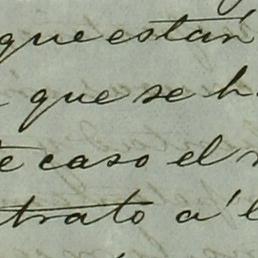 que están
que se h
te caso el
trato a' l